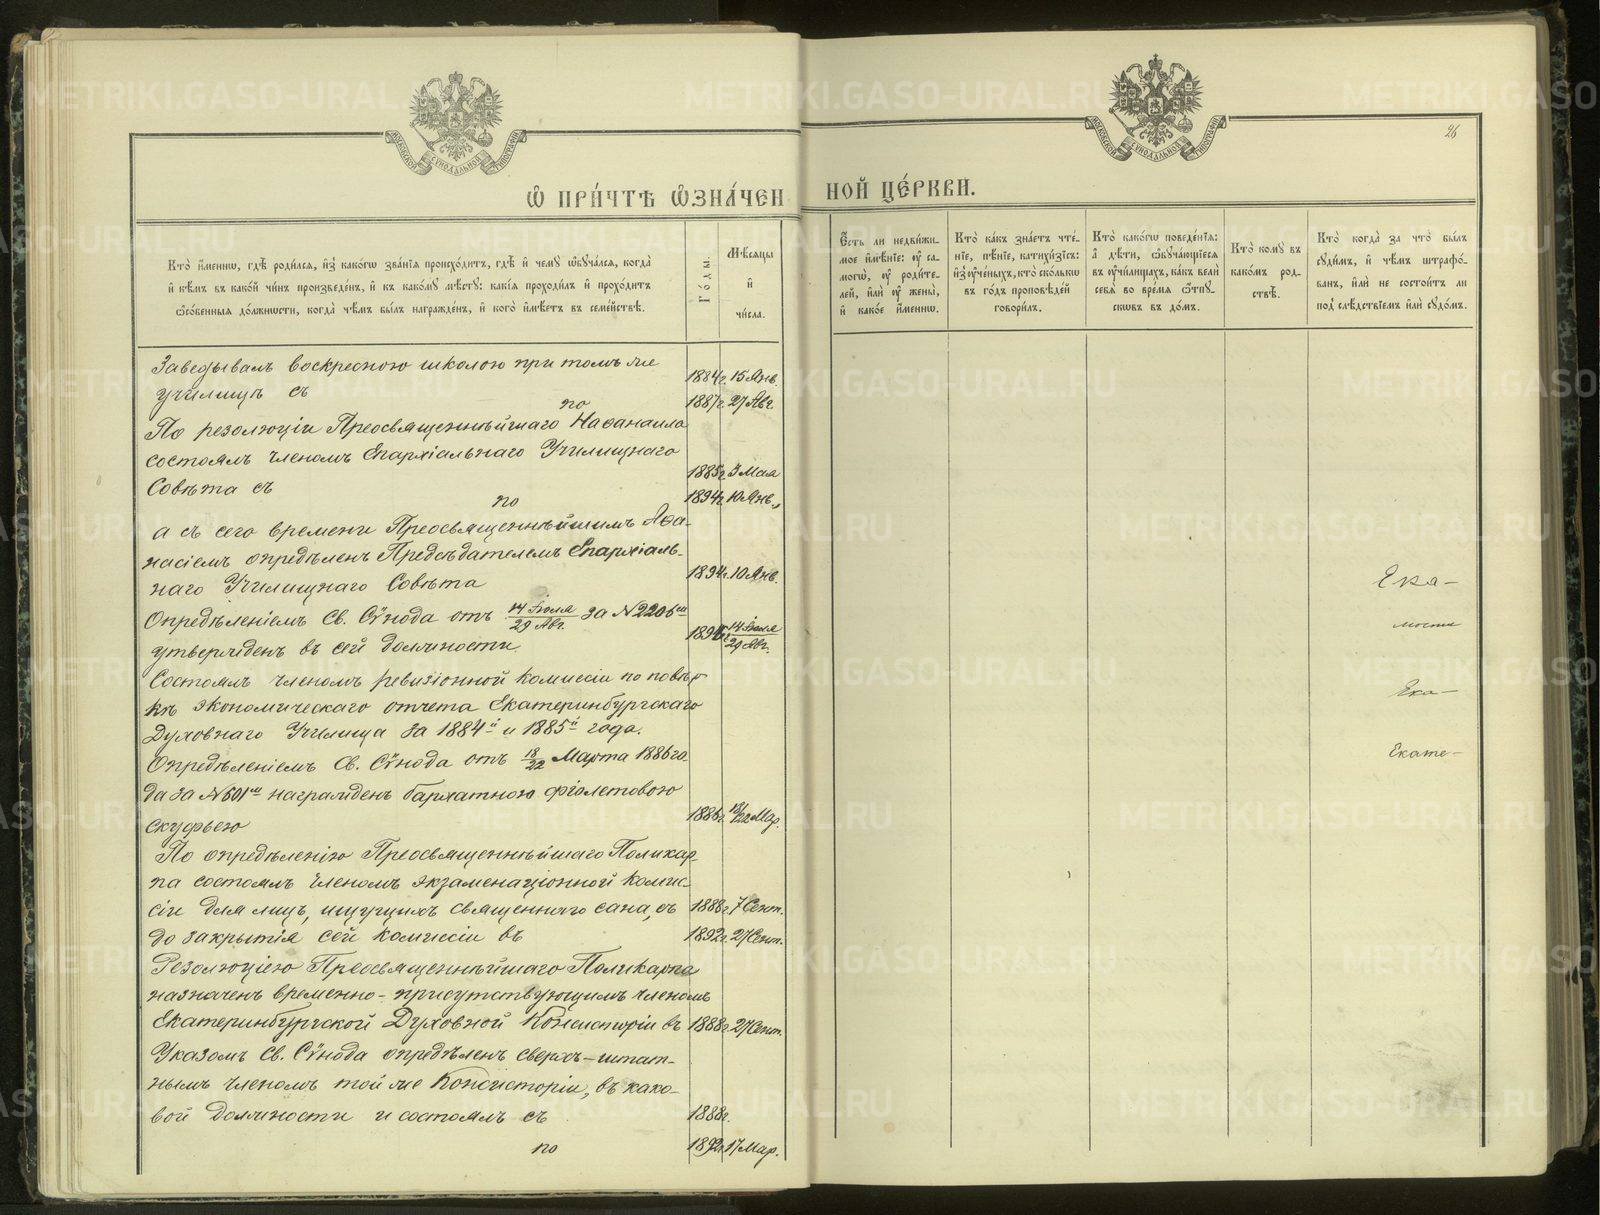 МОСКОВСКОЙ СѴНОДАЛЬНОЙ ТИПОГРАФІИ
МОСКОВСКОЙ СѴНОДАЛЬНОЙ ТИПОГРАФІИ
26
Ѡ ПРИ́ЧТѢ ѠЗНА́ЧЕННОЙ ЦЕ́РКВИ.
Кто̀ и҆́менно, гдѣ̀ роди́лсѧ, и҆з̾ како́гѡ зва́нїѧ происхо́дитъ, гдѣ̀ и҆ чемꙋ̀ ѡ҆бꙋча́лсѧ, когда̀
и҆ кѣ́мъ въ како́й чи́нъ произведе́нъ, и҆ къ како́мꙋ мѣ́стꙋ: какі̑ѧ проходи́лъ и҆ прохо́дитъ
ѻ҆со́бенныѧ до́лжности, когда̀ чѣ́мъ бы́лъ награжде́нъ, и҆ кого̀ и҆мѣ́етъ въ семе́йствѣ.
Го́ды.
Мѣ́сѧцы
и҆
чи́сла.
Є҆́сть ли недви́жи-
мое и҆мѣ́нїе: ᲂу҆ са-
могѡ̀, ᲂу҆ роди́те-
лей, и҆лѝ ᲂу҆ жены̀,
и҆ како́е и҆́менно.
Кто̀ ка́къ зна́етъ чте́-
нїе, пѣ́нїе, катихи́зїсъ:
и҆з̾ ᲂу҆че́ныхъ, кто̀ ско́лькѡ
въ го́дъ проповѣ́дей
говори́лъ.
Кто̀ како́гѡ поведе́нїѧ:
а҆ дѣ́ти, ѡ҆бꙋча́ющїесѧ
въ ᲂу҆чи́лищахъ, ка́къ велѝ
себѧ̀ во вре́мѧ ѿпꙋ-
скѡвъ въ до́мъ.
Кто̀ комꙋ̀ въ
како́мъ род-
ствѣ̀.
Кто̀ когда̀ за что̀ бы́лъ
сꙋди́мъ, и҆ чѣ́мъ штрафо́-
ванъ, и҆лѝ не состои́тъ ли
под̾ слѣ́дствїемъ и҆лѝ сꙋдо́мъ.
Завѣдывалъ воскресною школою при томъ же
училищѣ съ 1884г. 15 Янв.
по 1887г. 27 Авг.
По резолюціи Преосвященнѣйшаго Наѳанаила
состоялъ членомъ Епархіальнаго Училищнаго
Совѣта съ 1885г. 3 Мая
по 1894г. 10 Янв.,
а съ сего времени Преосвященнѣйшимъ Аѳа-
насіемъ опредѣленъ Предсѣдателемъ Епархіаль-
наго Училищнаго Совѣта 1894г. 10 Янв.
Опредѣленіемъ Св. Сѵнода отъ 14 Іюля/29 Авг. за №2206мъ
утвержденъ въ сей должности 14 Іюля/29 Авг.
Состоялъ членомъ ревизіонной комиссіи по повѣр-
кѣ экономическаго отчета Екатеринбургскаго
Духовнаго Училища за 1884й и 1885й года.
Опредѣленіемъ Св. Сѵнода отъ 18/22 Марта 1886 го-
да за №601мъ награжденъ бархатною фіолетовою
скуфьею 1886г. 18/22 Мар.
По опредѣленію Преосвященнѣйшаго Поликар-
па состоялъ членомъ экзаменаціонной комис-
сіи для лицъ, ищущихъ священнаго сана, съ 1888г. 7 Сент.
до закрытія сей комиссіи въ 1892г. 27 Сент.
Резолюціею Преосвященнѣйшаго Поликарпа
назначенъ временно-присутствующимъ членомъ
Екатеринбургской Духовной Консисторіи въ 1888г. 27 Сент.
Указомъ Св. Сѵнода опредѣленъ сверхъ-штат-
нымъ членомъ той же Консисторіи, въ како-
вой должности и состоялъ съ 1888г.
по 1892г. 17 Мар.
Ека-
мости
Ека-
Екате-
METRIKI.GASO-URAL.RU